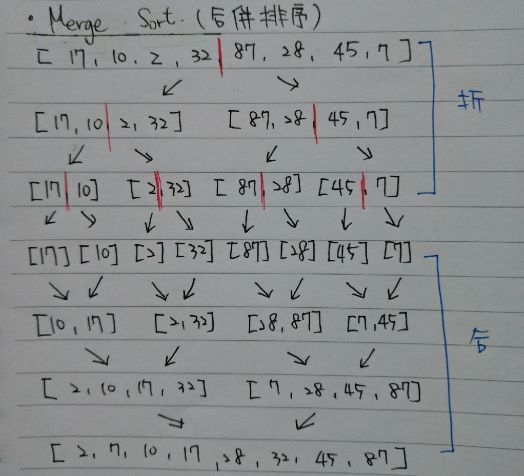 • Merge Sort. (合併排序)
[ 17, 10, 2, 32 87, 28, 45, 7 ]
[17, 10 2, 32] [87, 28, 45, 7]
拆
[17 10] [2, 32] [87, 28] [45, 7]
[17] [10] [2] [32] [87] [28] [45] [7]
[10, 17] [2, 32] [28, 87] [7, 45]
合
[2, 10, 17, 32] [7, 28, 45, 87]
[2, 7, 10, 17, 28, 32, 45, 87]